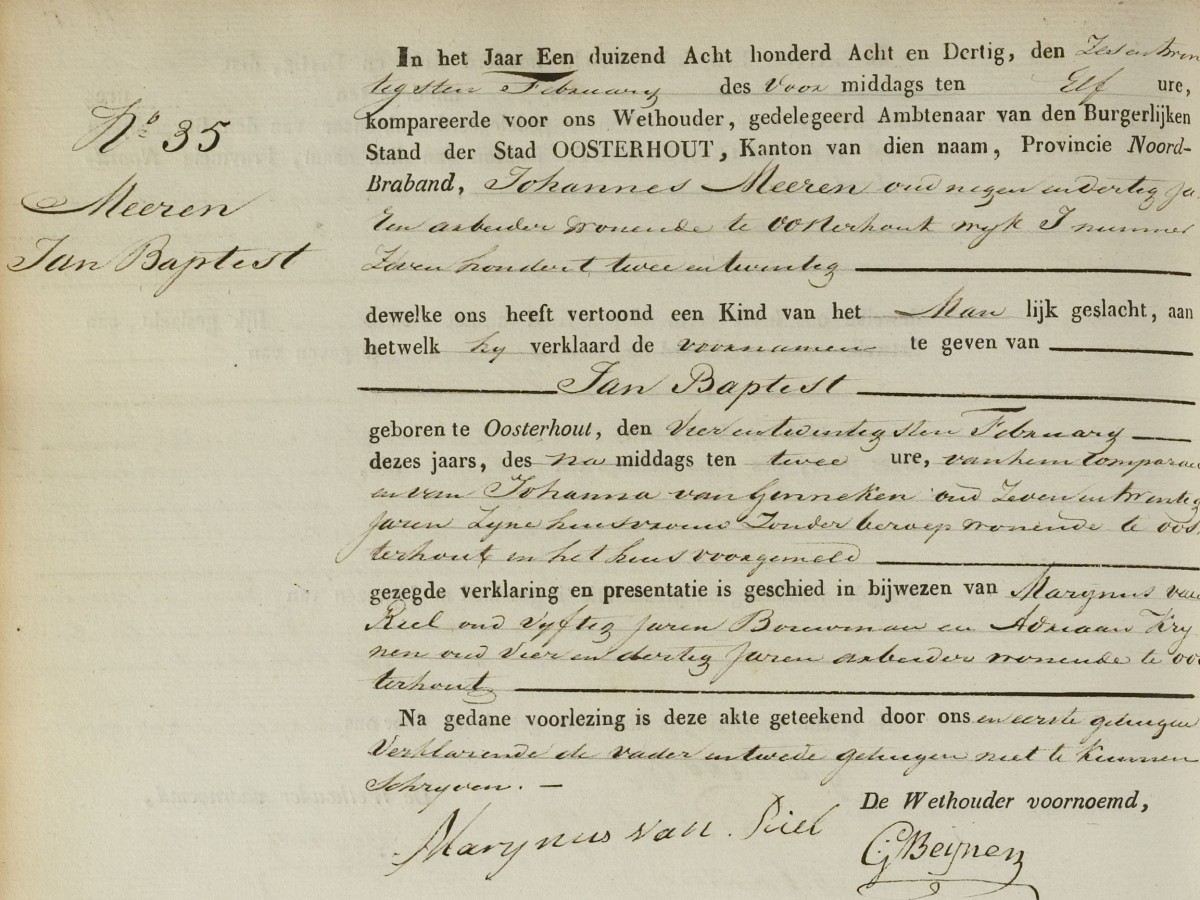 In het Jaar Een duizend Acht honderd Acht en Dertig, den Zesentwen
tigsten February des Voor middags ten Elf ure,
kompareerde voor ons Wethouder, gedelegeerd Ambtenaar van den Burgerlijken
Stand der Stad OOSTERHOUT, Kanton van dien naam, Provincie Noord-
Braband, Johannes Meeren oud negen en dertig ja
een arbeider wonende te oosterhout wyk I nummer
Zeven hondert twee en twenteg
No 35
Meeren
Jan Baptest
dewelke ons heeft vertoond een Kind van het Man lijk geslacht, aan
hetwelk hy verklaard de voornamen te geven van
Jan Baptest
geboren te Oosterhout, den Vier entwentigsten February
dezes jaars, des na middags ten twee ure, van hem Comparan
en van Johanna van Genneken oud Zeven en twenteg
Jaren Zyne huesvrouw Zonder beroep wonende te oos
terhout in het hues voorgemeld
gezegde verklaring en presentatie is geschied in bijwezen van Marynus van
Riel oud Vyfteg Jaren Bouwman en Adriaan Kry
nen oud Vier en derteg Jaren arbeider wonende te oos
terhout
Na gedane voorlezing is deze akte geteekend door ons en eerste geteugen
Verklarende de vader en twede geteugen niet te kunnen
Schryven. —
De Wethouder voornoemd,
Marynus van Riel
CJBeijnen